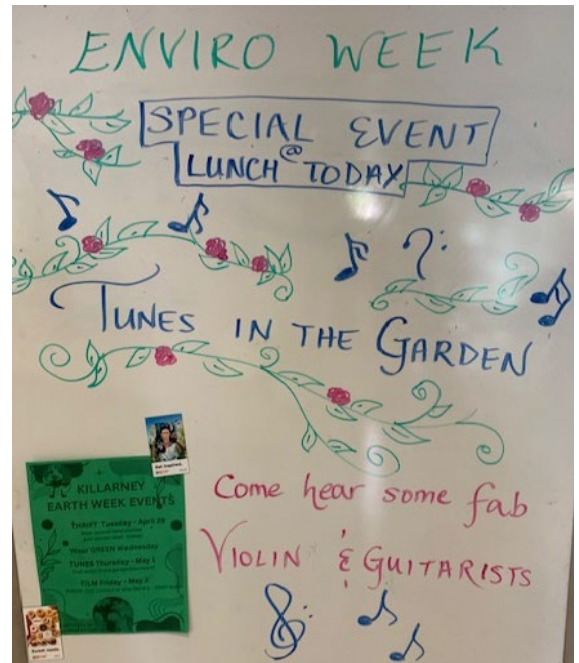 ENVIRO WEEK
SPECIAL EVENT
LUNCH @ TODAY
TUNES IN THE GARDEN
Come hear some fab
VIOLIN & GUITARISTS
KILLARNEY
EARTH WEEK EVENTS
THRIFT Tuesday - April 29
Wear GREEN Wednesday
TUNES Thursday - May 1
FILM Friday - May 2